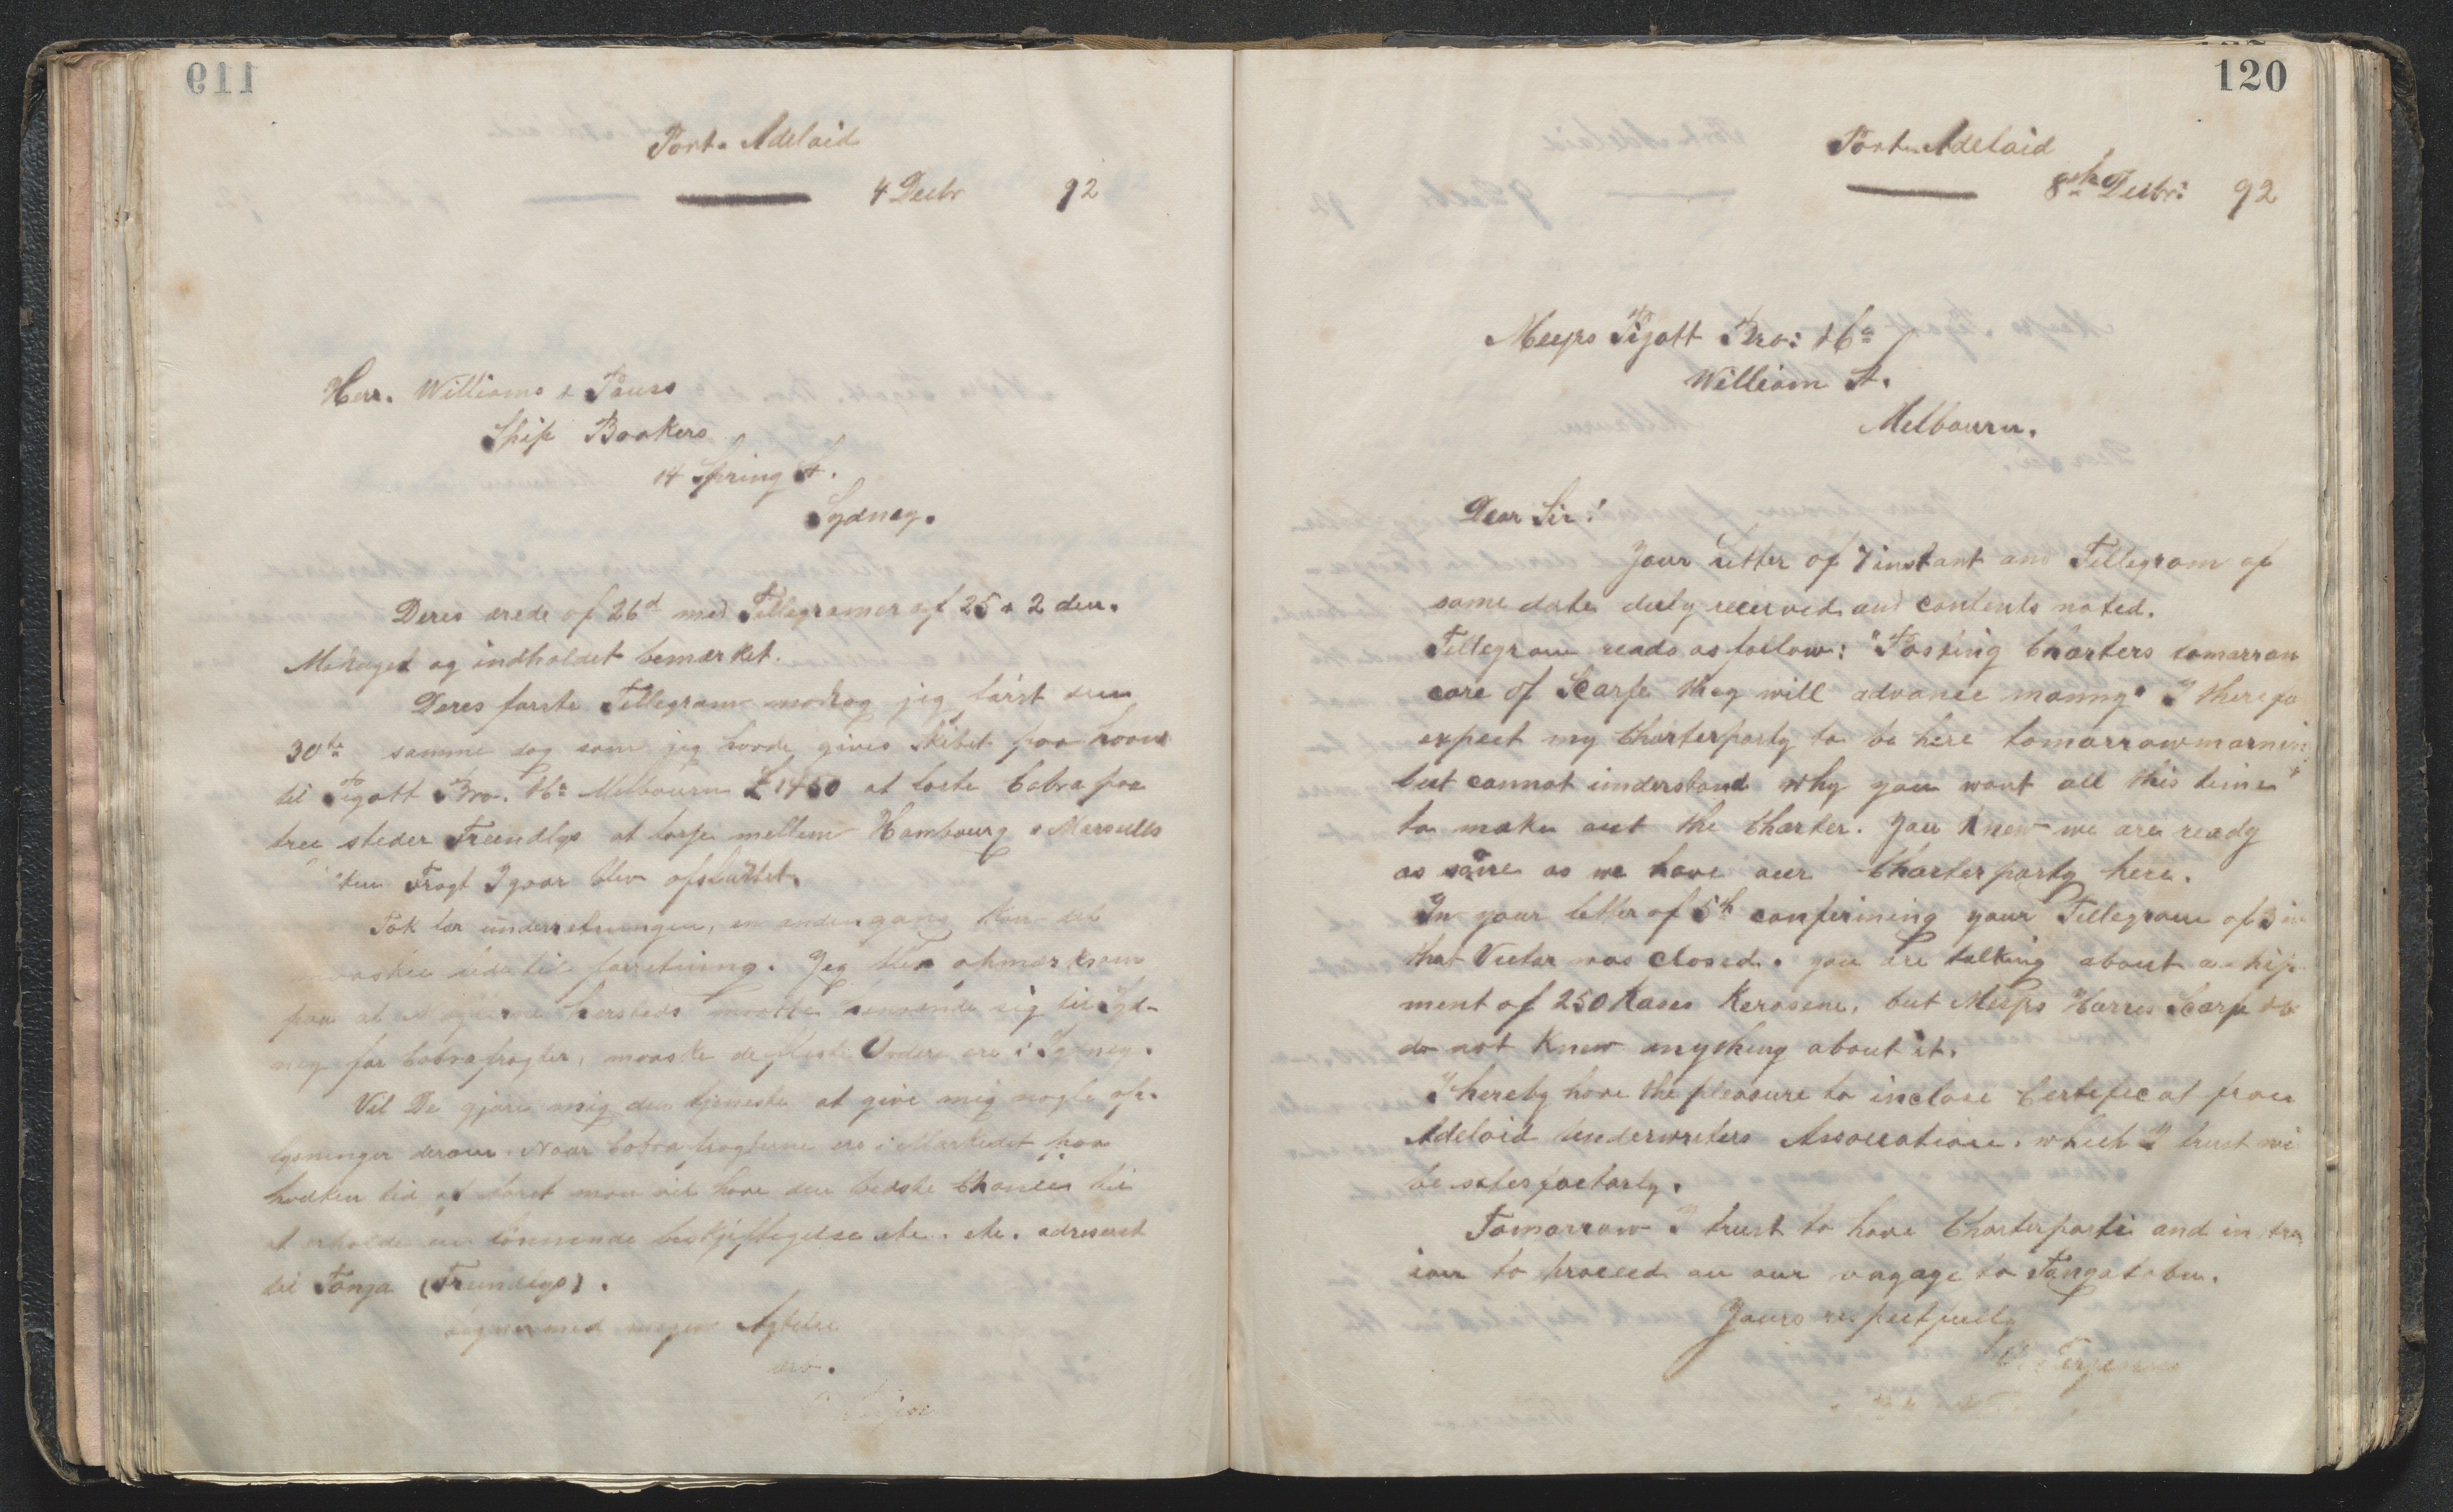 119
Port. Adelaid
4 Decbr 92
Herr. Williams & Pauss
Ship Brokers
14 Spring St.
Sydney.
Deres ærede af 26d med Tellegramer af 25 & 2 den.
Modtaget og indholdet bemærket.
Deres første Tellegram modtog jeg først den
30te samme dag som jeg havde given Skibet paa haand
til Pigott Bro. & Co Melbourn £1450 at laste Cobra paa
tree steder Freindlys at losse mellem Hambourg & Marseills
Fragt Igaar blev afsluttet.
Tak for underretningen, en anden gang kan det
maaskee lede til forretning. Jeg blev opmærksom
paa at
ney for Cobrafragter, maaske de fleste Ordere ere i Sydney.
Vil De gjøre mig den tjeneste at give mig nogle op-
lysninger derom. Naar Cobrafragterne ere i Markedet paa
hvilken tid af Aaret man vil have den bedste Chancer til
at erholde en lønnende beskjæftigelse etc. etc. adreseret
til Tonga (Freindlys).
med megen Agtelse
ærb.
120
Port. Adelaid
8th Decbr: 92
Messrs Pigott Bro: & Co
William St.
Melbourn.
Dear Sir!
Your letter of 7 instant and Tellegram of
same date duly received and contents noted.
Tellegram reads as follow: "Posting Charters tomarrow
care of Scarfe they will advance monny" I therefo
expect my Charterparty to be here tomarrow mornin
but cannot understand why you want all this time
to make out the Charter. You know we are ready
as sone as we have our Charterparty here.
In your letter of 5th confirining your Tellegram of 3 in
that Vectar was closed. you are talking about a ship
ment of 250 Kases Kerosene, but Messrs Harres Scarfe & Co
do not know anything about it.
I hereby have the pleasure to inclose Certeficat from
Adelaid Underwriters Assosiation. which I trust wi
be satesfactorly.
Tomorrow I trust to have Charterparti and instru
ion to proceed on our voyage to Tongatabu.
Yours respectfully
Terjesen